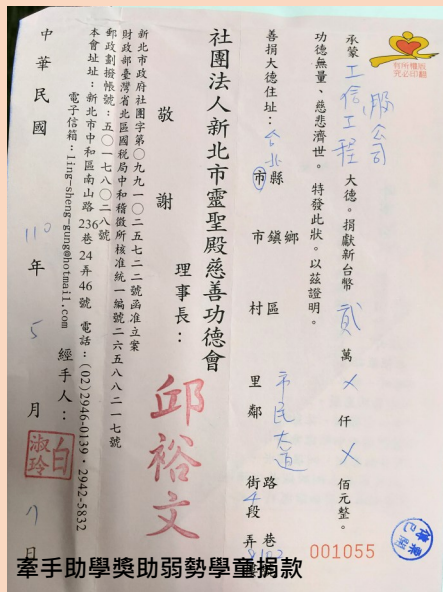 版權所有
翻印必究
承蒙 工信工程 股公司 大德。捐獻新台幣 貳 萬 × 仟 × 佰元整。
功德無量、慈悲濟世。特發此狀。以茲證明。
善捐大德住址：台北 市縣 市鎮鄉 村區 里鄰 市民大道 街路 4段
社團法人新北市靈聖殿慈善功德會
敬謝 理事長： 邱裕文
新北市政府社團字第〇九九一〇二五七二二號函准立案
財政部臺灣省北區國稅局中和稽徵所核准統一編號二六五八八二一七號
郵政劃撥帳號：五〇一七八〇二八號
本會址址：新北市中和區南山路236巷24弄46號 電話：(02)2946-0139・2942-5832
電子信箱：ling-sheng-gung@hotmail.com 經手人： 白淑玲
中華民國 110 年 5 月 日
001055
牽手助學獎助弱勢學童捐款